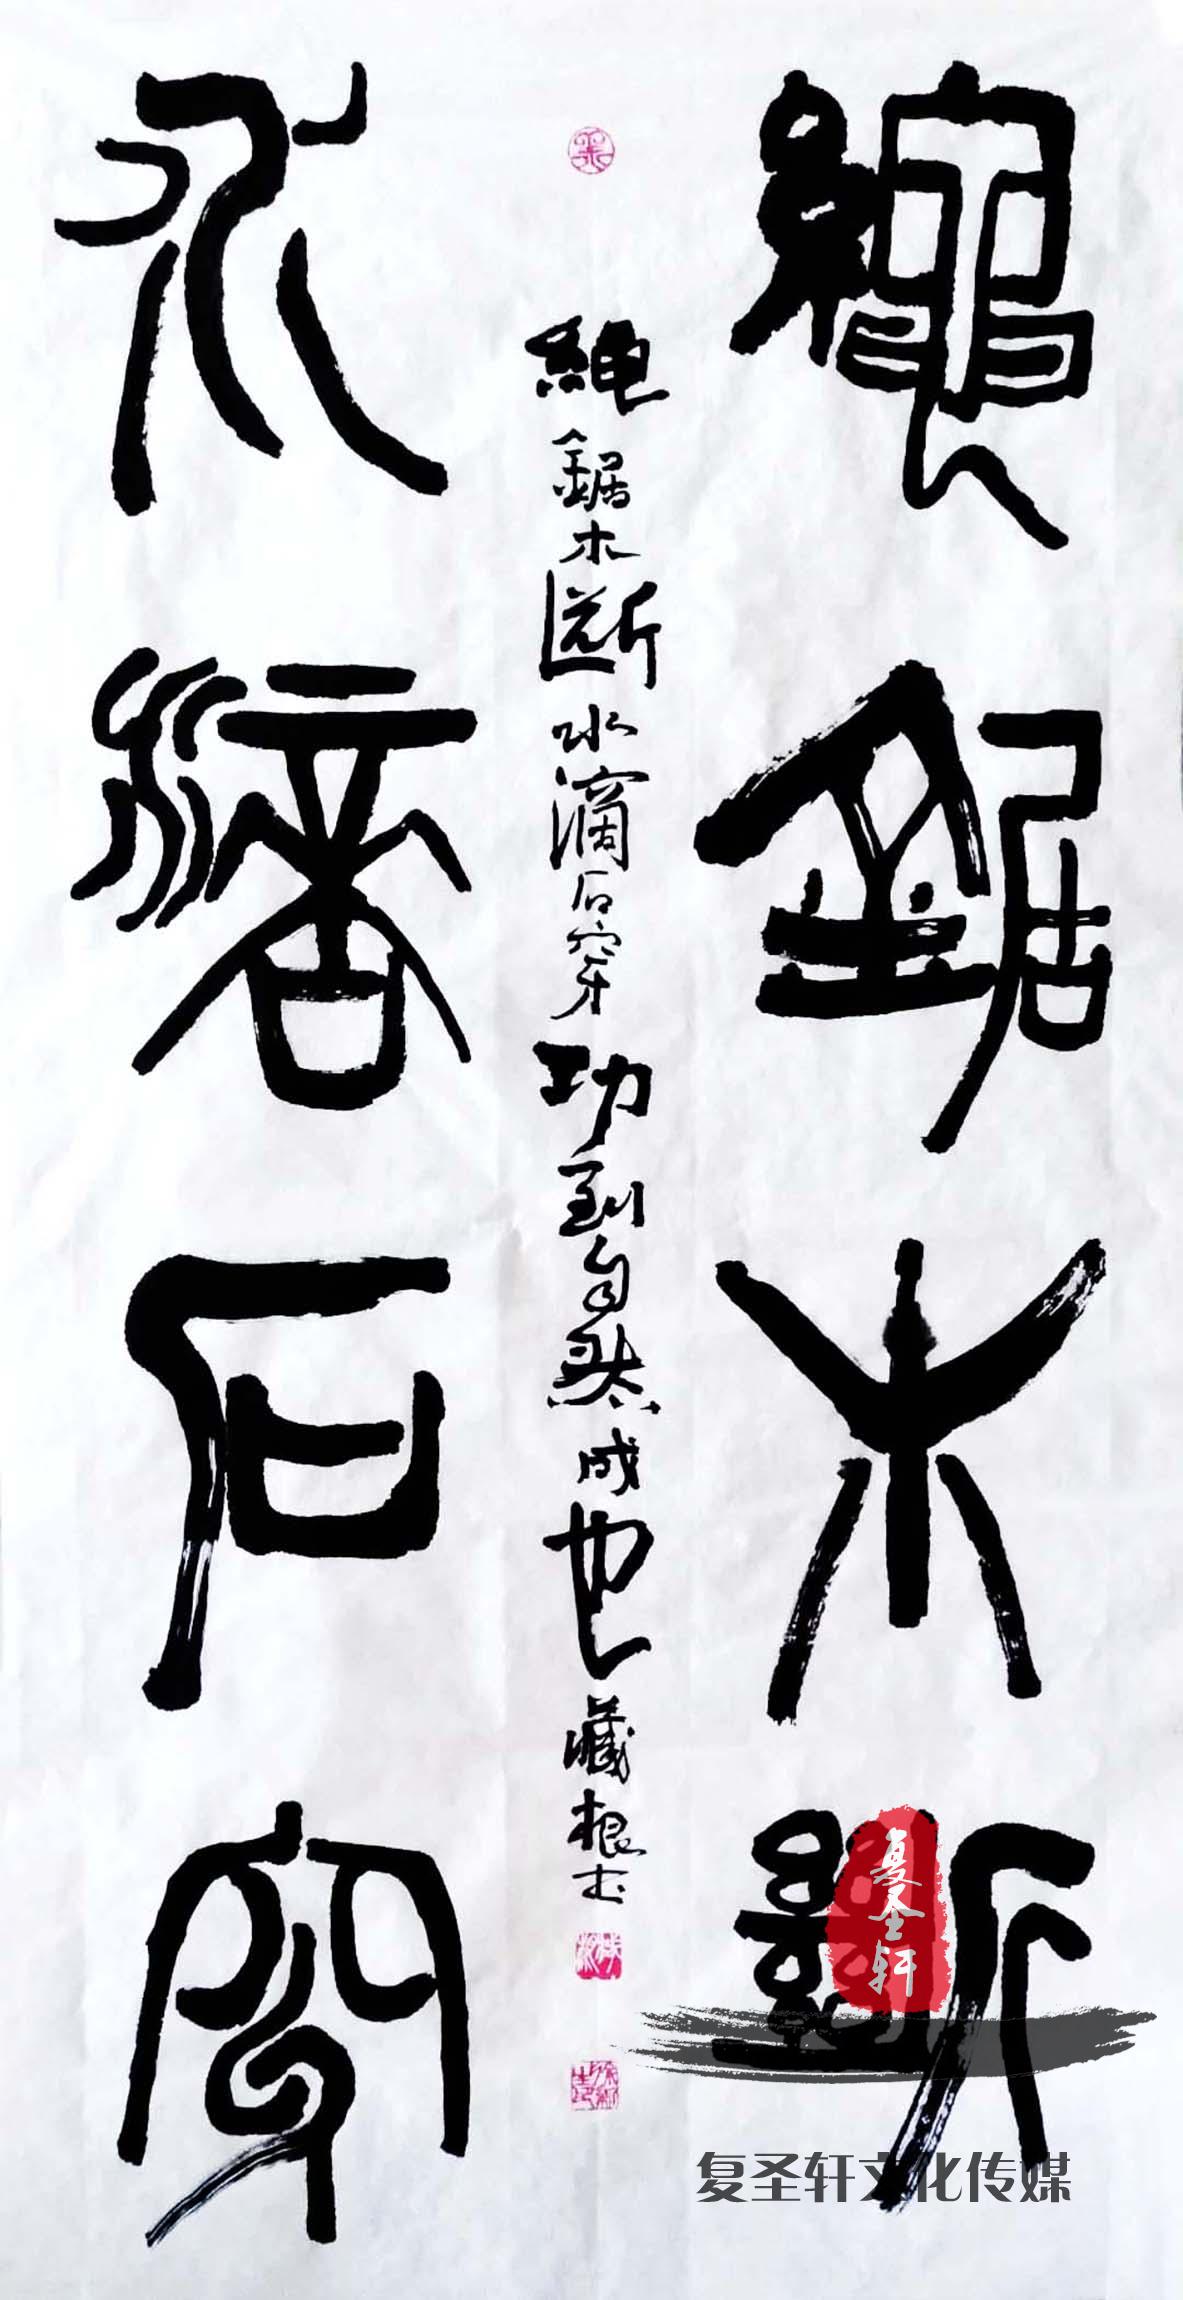 繩鋸木斷
水滴石穿
繩鋸木斷水滴石穿功到自然成也藏根书
复圣轩
复圣轩文化传媒